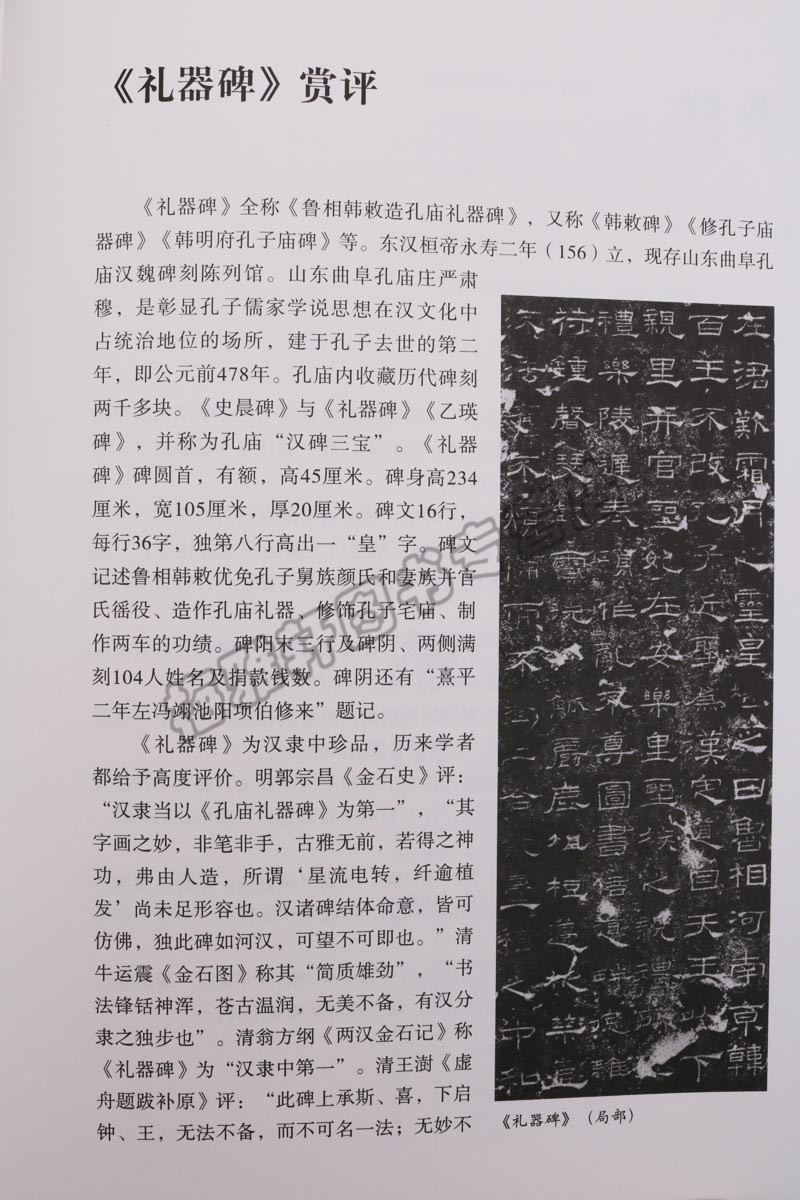 《礼器碑》赏评
《礼器碑》全称《鲁相韩敕造孔庙礼器碑》，又称《韩敕碑》《修孔子庙
器碑》《韩明府孔子庙碑》等。东汉桓帝永寿二年（156）立，现存山东曲阜孔
庙汉魏碑刻陈列馆。山东曲阜孔庙庄严肃
穆，是彰显孔子儒家学说思想在汉文化中
占统治地位的场所，建于孔子去世的第二
年，即公元前478年。孔庙内收藏历代碑刻
两千多块。《史晨碑》与《礼器碑》《乙瑛
碑》，并称为孔庙“汉碑三宝”。《礼器
碑》碑圆首，有额，高45厘米。碑身高234
厘米，宽105厘米，厚20厘米。碑文16行，
每行36字，独第八行高出一“皇”字。碑文
记述鲁相韩敕优免孔子舅族颜氏和妻族并官
氏徭役、造作孔庙礼器、修饰孔子宅庙、制
作两车的功绩。碑阳末三行及碑阴、两侧满
刻104人姓名及捐款钱数。碑阴还有“熹平
二年左冯翊池阳项伯修来”题记。
《礼器碑》为汉隶中珍品，历来学者
都给予高度评价。明郭宗昌《金石史》评：
“汉隶当以《孔庙礼器碑》为第一”，“其
字画之妙，非笔非手，古雅无前，若得之神
功，弗由人造，所谓‘星流电转，纤逾植
发’尚未足形容也。汉诸碑结体命意，皆可
仿佛，独此碑如河汉，可望不可即也。”清
牛运震《金石图》称其“简质雄劲”，“书
法锋铦神浑，苍古温润，无美不备，有汉分
隶之独步也”。清翁方纲《两汉金石记》称
《礼器碑》为“汉隶中第一”。清王澍《虚
舟题跋补原》评：“此碑上承斯、喜，下启
钟、王，无法不备，而不可名一法；无妙不
在涒歎霜月之靈皇極之日魯相河南京韓
百王不改孔子近聖為漢定道自天王以下
親里并官聖妃在安樂里聖族之親禮所
禮樂陵遲秦項作亂不尊圖書倍道畔德離
符鍾磬瑟鼓雷洗觴觚爵鹿柤梪籩柀禁壺
《礼器碑》（局部）